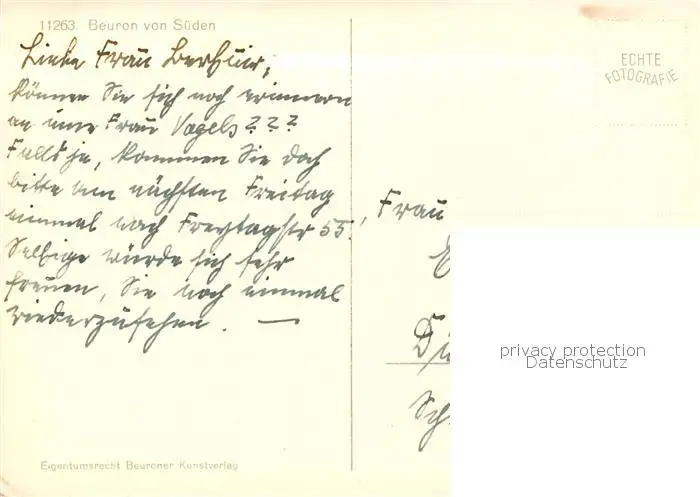 11263. Beuron von Süden
Liebe Frau
können Sie sich noch erinnern
an eine Frau Vogels???
Falls ja, kommen Sie doch
bitte am nächsten Freitag
einmal nach Freytagstr 55.
Selbige würde sich sehr
freuen, Sie noch einmal
wiederzusehen. —
ECHTE
FOTOGRAFIE
Frau
privacy protection
Datenschutz
Eigentumsrecht Beuroner Kunstverlag